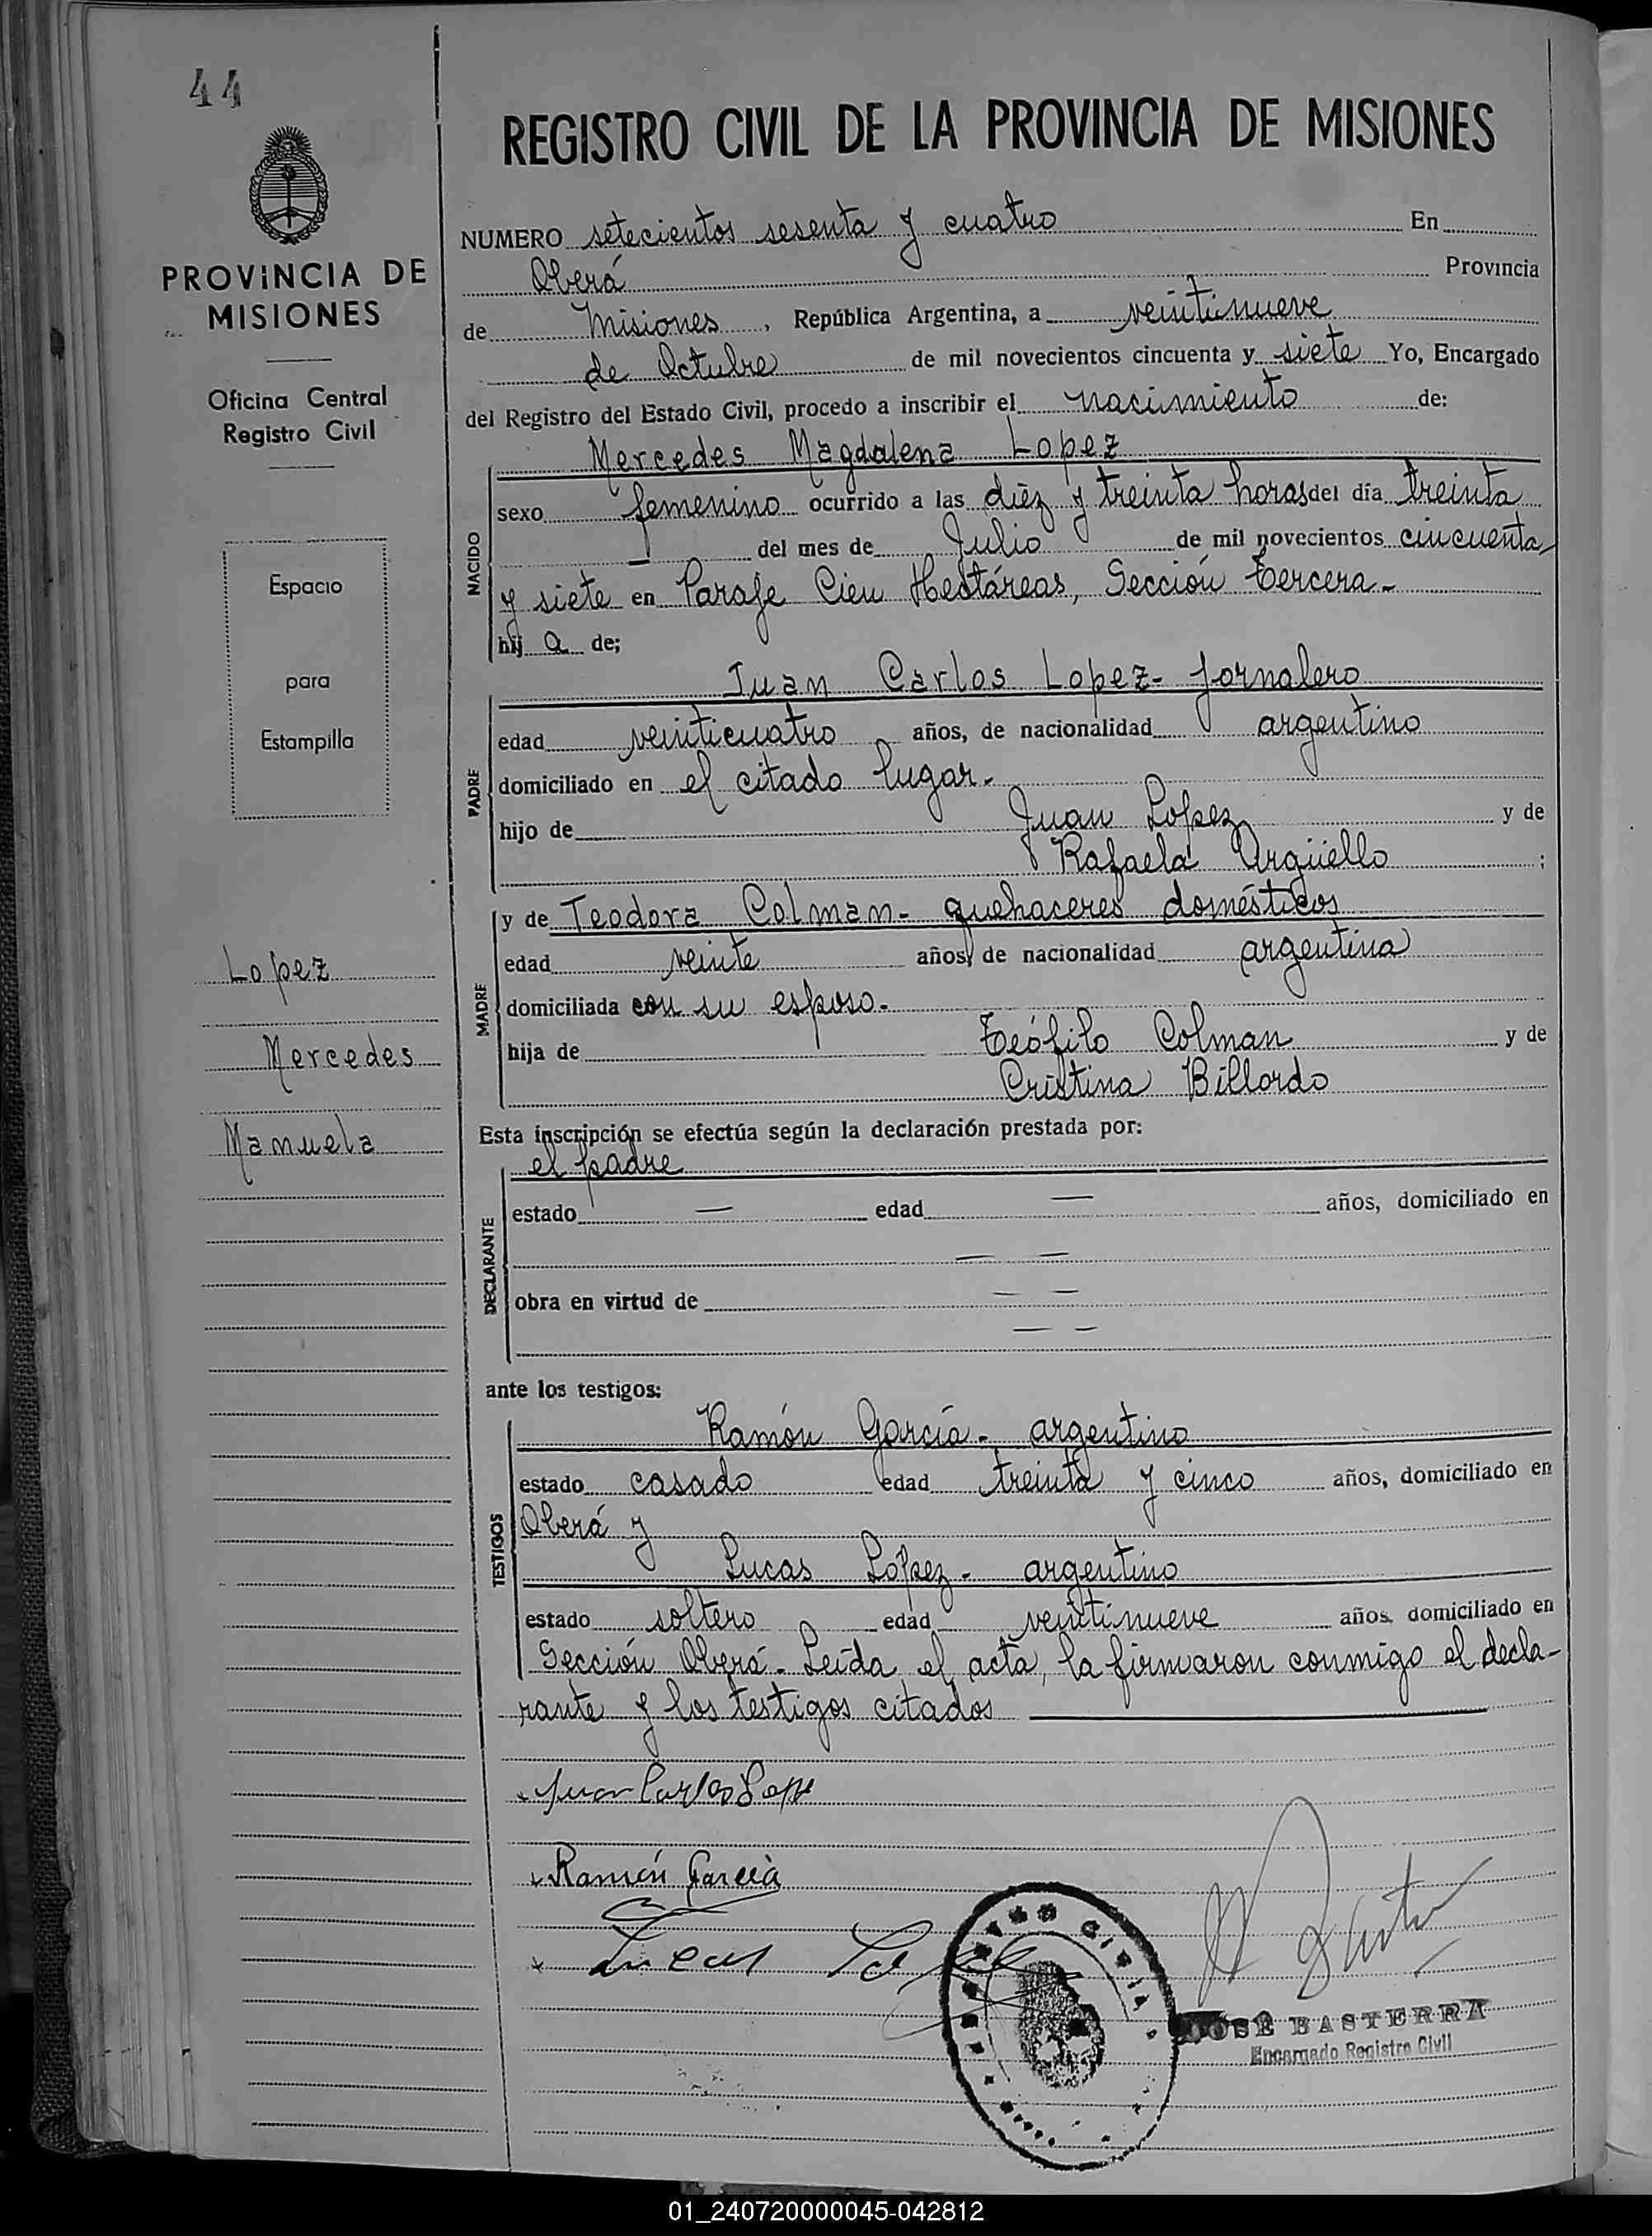 44
PROVINCIA DE
MISIONES
Oficina Central
Registro Civil
Espacio
para
Estampilla
Lopez
Mercedes
Manuela
REGISTRO CIVIL DE LA PROVINCIA DE MISIONES
NUMERO setecientos sesenta y cuatro En
Oberá Provincia
de Misiones, República Argentina, a veintinueve
de Octubre de mil novecientos cincuenta y siete Yo, Encargado
del Registro del Estado Civil, procedo a inscribir el nacimiento de:
Mercedes Magdalena Lopez
NACIDO
sexo femenino ocurrido a las diez y treinta horas del día treinta
— del mes de Julio de mil novecientos cincuenta
y siete en Paraje Cien Hectáreas, Sección Tercera-
hij a de;
PADRE
Juan Carlos Lopez- jornalero
edad veinticuatro años, de nacionalidad argentino
domiciliado en el citado lugar.
hijo de Juan Lopez y de
Rafaela Argüello ;
MADRE
y de Teodora Colman- quehaceres domésticos
edad veinte años, de nacionalidad argentina
domiciliada con su esposo.
hija de Teófilo Colman y de
Cristina Billordo
Esta inscripción se efectúa según la declaración prestada por:
DECLARANTE
el padre
estado — edad — años, domiciliado en
— —
obra en virtud de — —
— —
ante los testigos:
TESTIGOS
Ramón García- argentino
estado casado edad treinta y cinco años, domiciliado en
Oberá y
Lucas Lopez- argentino
estado soltero edad veintinueve años, domiciliado en
Sección Oberá- Leída el acta, la firmaron conmigo el decla-
rante y los testigos citados
Juan Carlos Lopez
Ramón García
Lucas Lopez
JOSE BASTERRA
Encargado Registro Civil
01_240720000045-042812